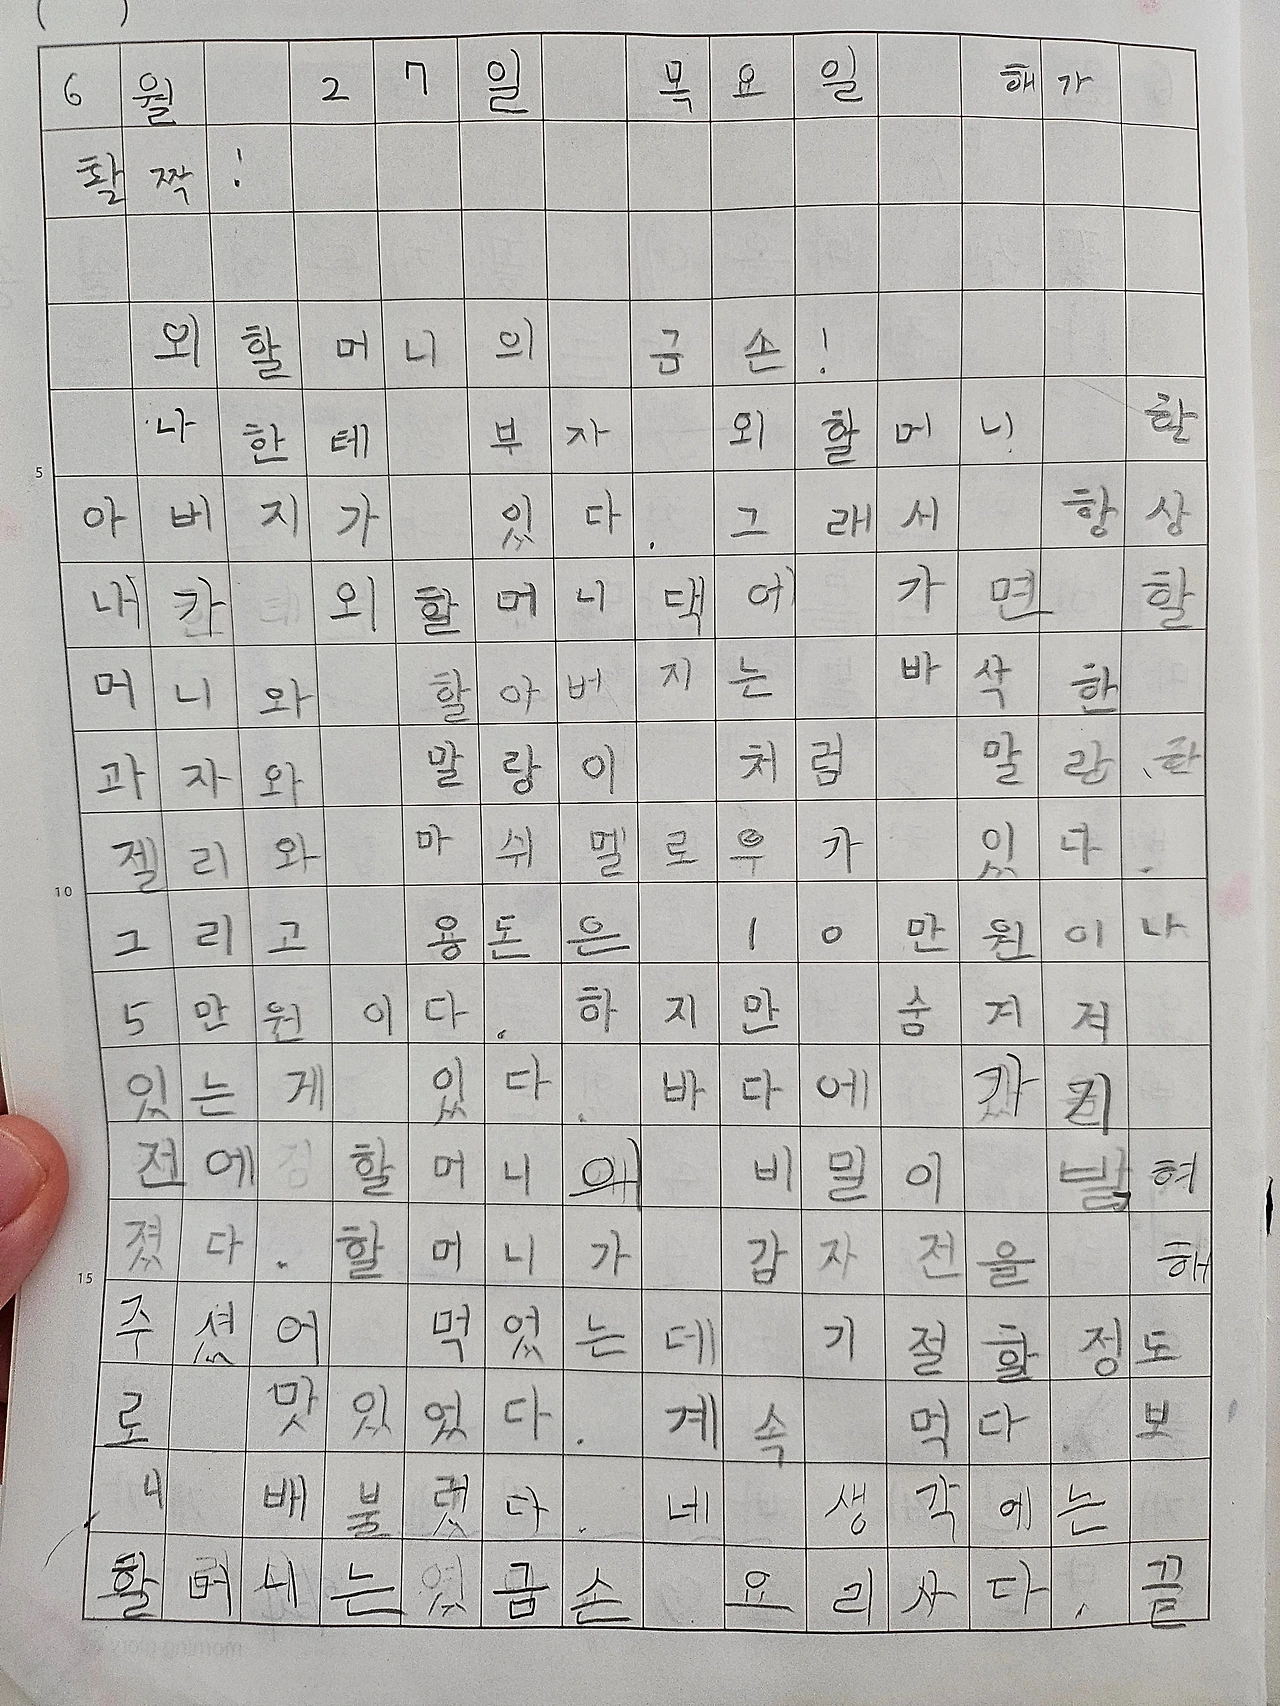 6월 27일 목요일 해가
활짝!
외할머니의 금손!
나한테 부자 외할머니 할
아버지가 있다. 그래서 항상
내가 외할머니댁에 가면 할
머니와 할아버지는 바삭한
과자와 말랑이 처럼 말랑한
젤리와 마쉬멜로우가 있다.
그리고 용돈은 10만원이나
5만원이다. 하지만 숨겨져
있는게 있다. 바다에 가기
전에 할머니의 비밀이 밝혀
졌다. 할머니가 감자전을 해
주셨어 먹었는데 기절할정도
로 맛있었다. 계속 먹다. 보
니 배불렀다. 네 생각에는
할머니는 금손 요리사다. 끝
5
10
15